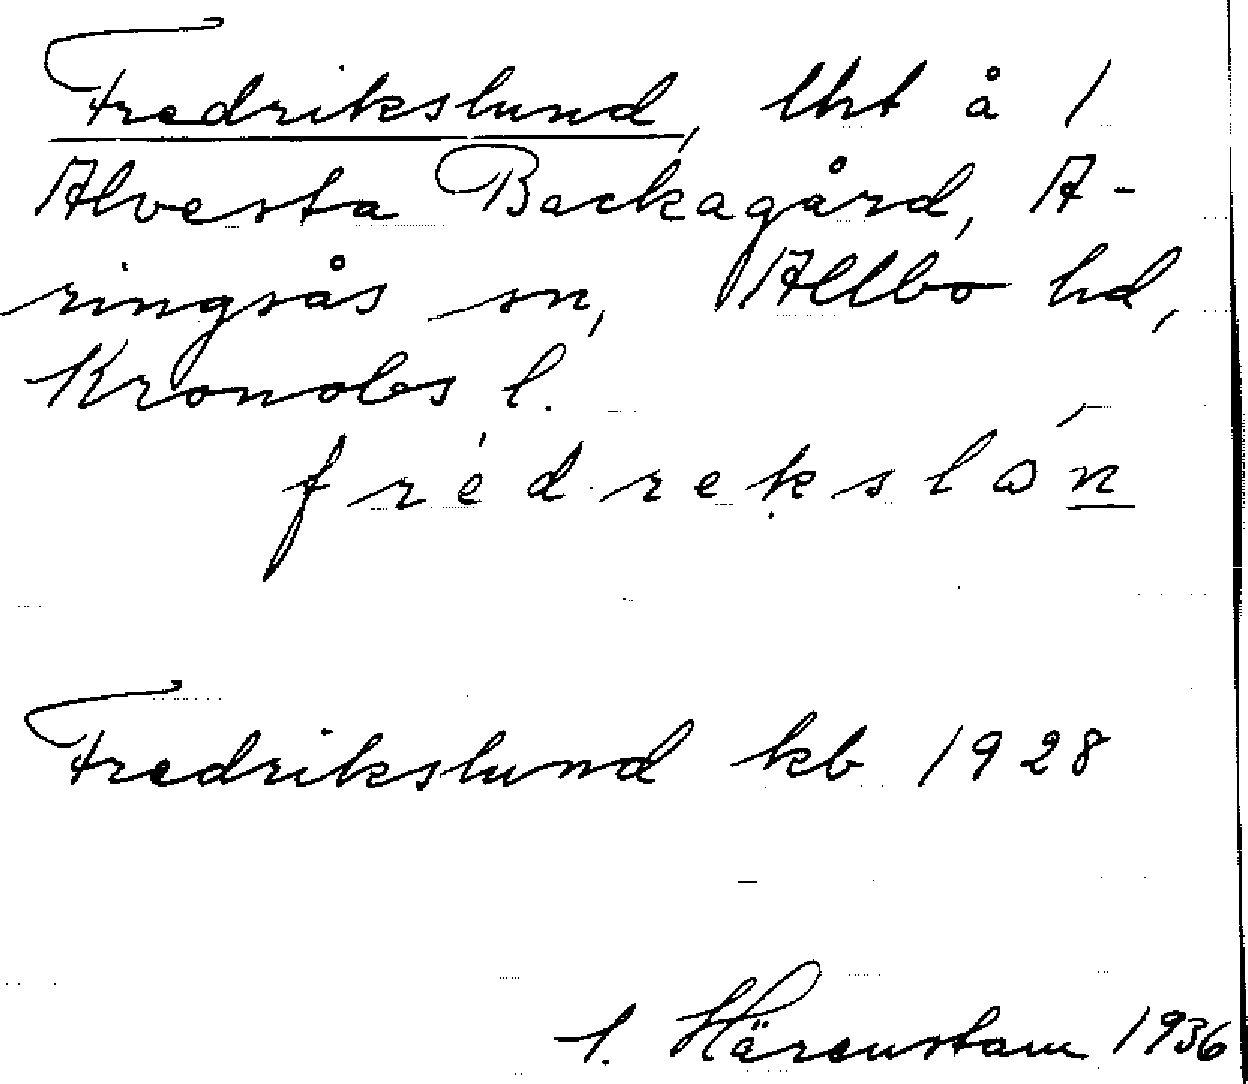 Fredrikslund, lht å 1
Alvesta Backagård, A-
ringsås sn, Allbo hd,
Kronobs l.
frédrekslón
Fredrikslund kb 1928
Härenstam 1936